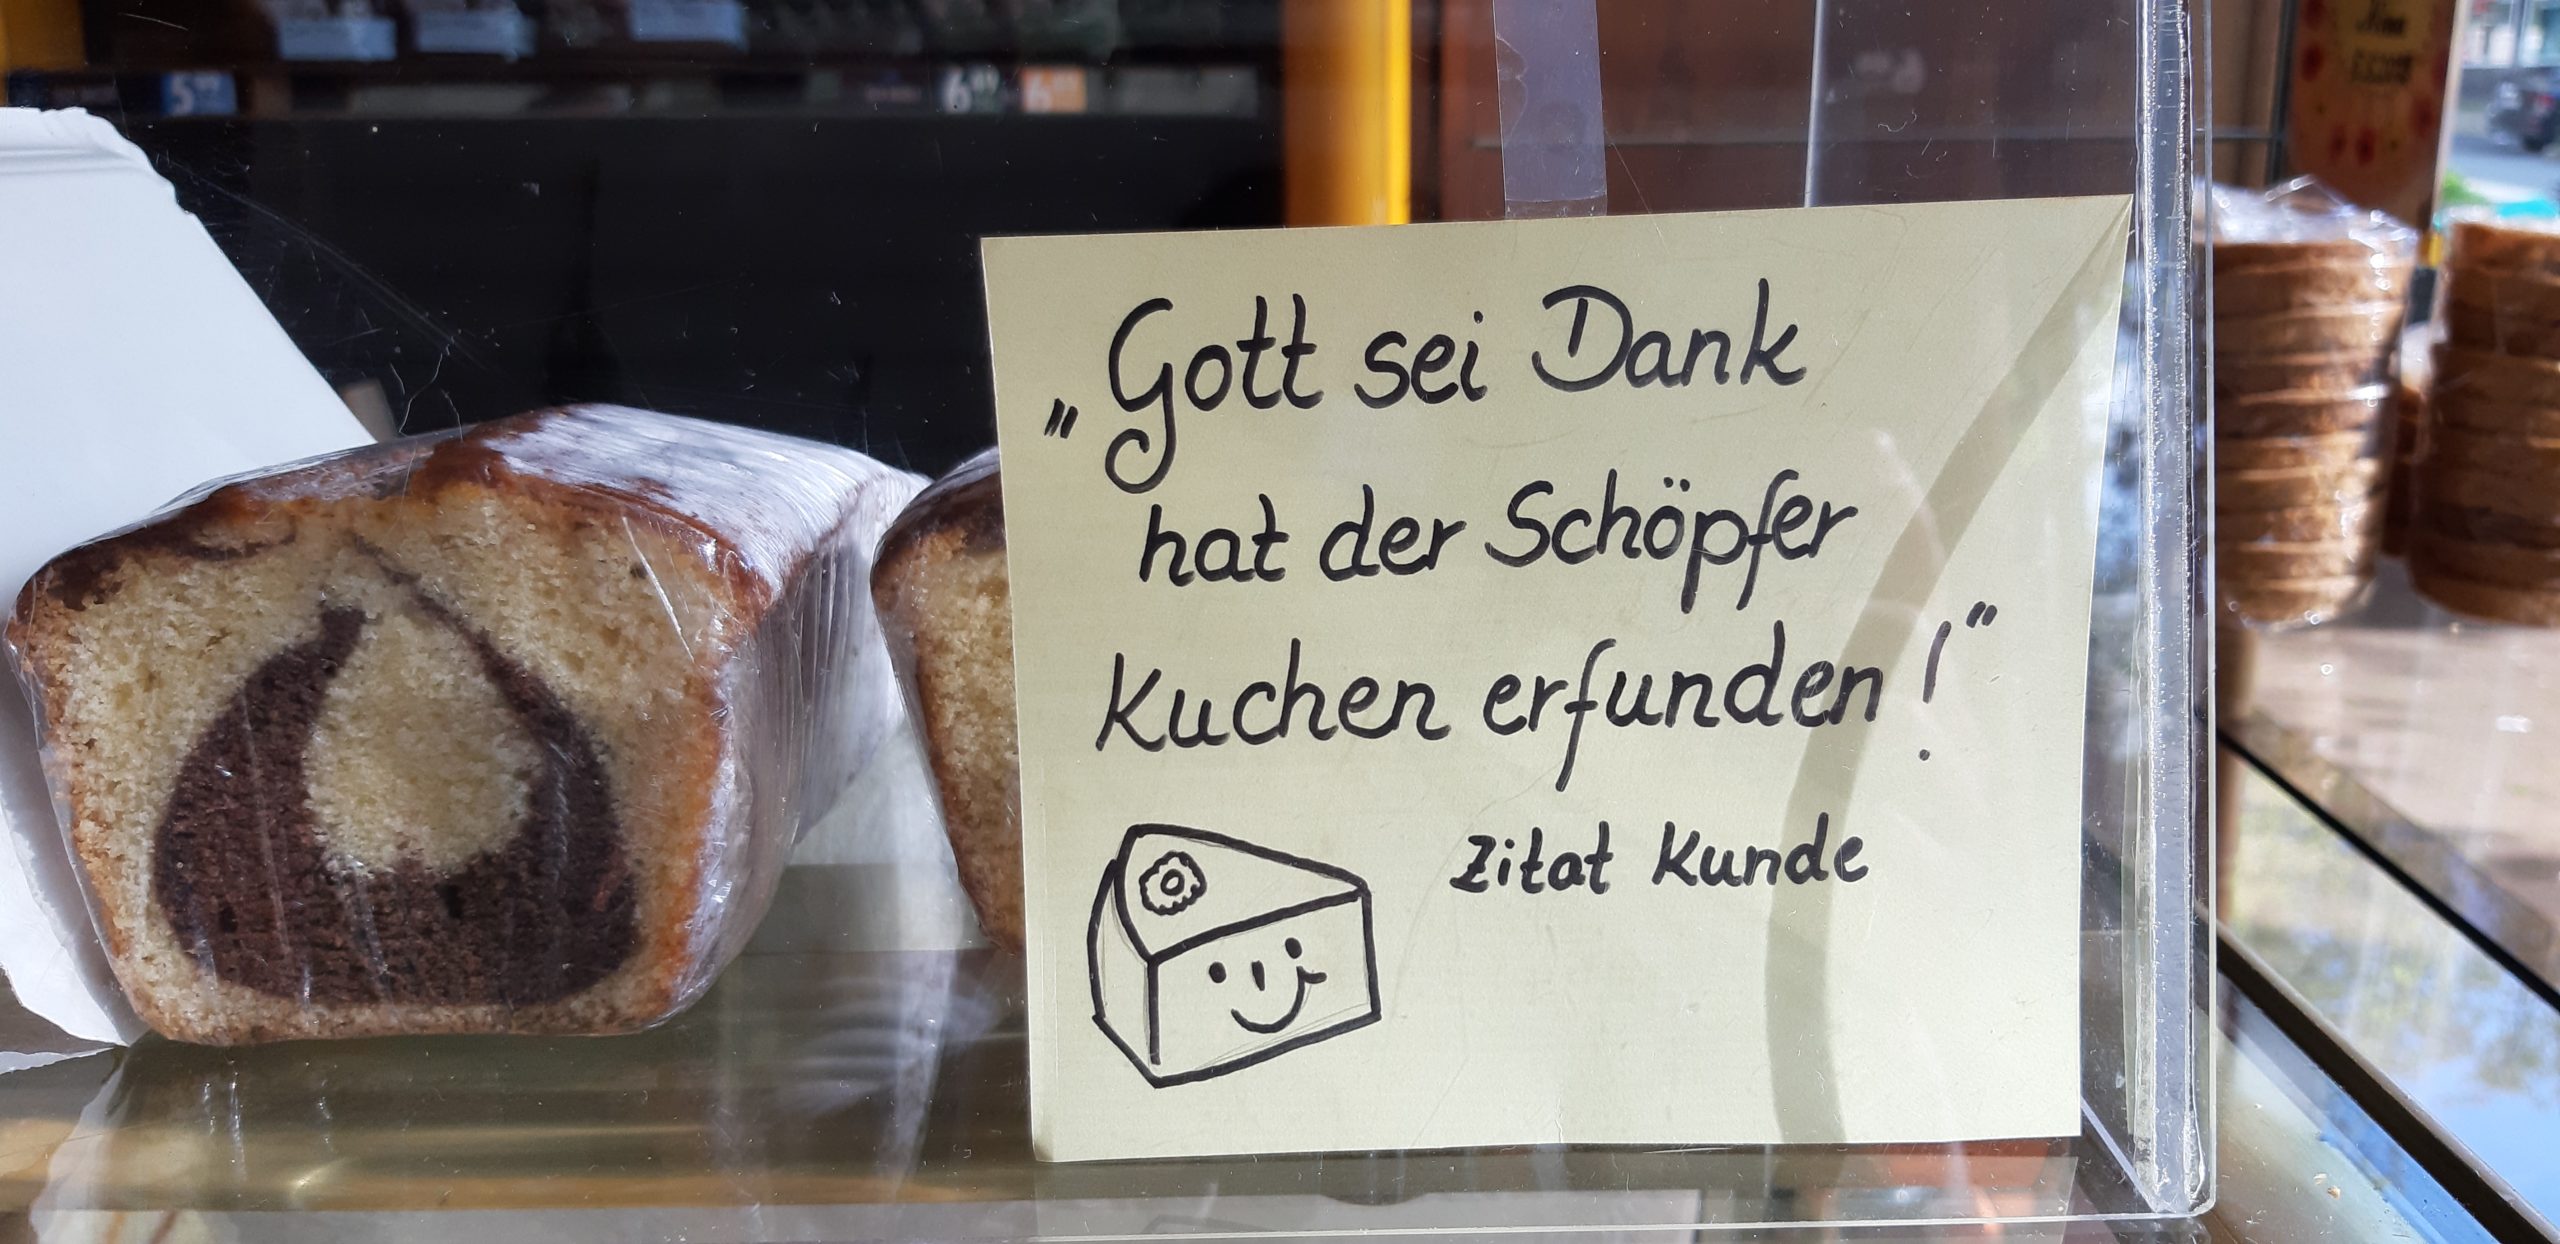 5.
6.49
6.
„Gott sei Dank
hat der Schöpfer
Kuchen erfunden!"
Zitat Kunde